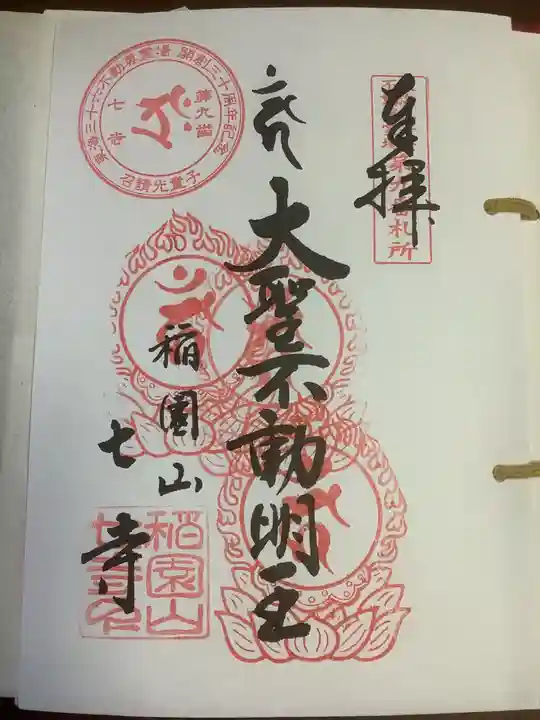 奉拝
札所
大聖不動明王
稲園山
七寺
東海三十六不動尊霊場 開創三十周年記念
第九番
七寺
召請光童子
稲園山